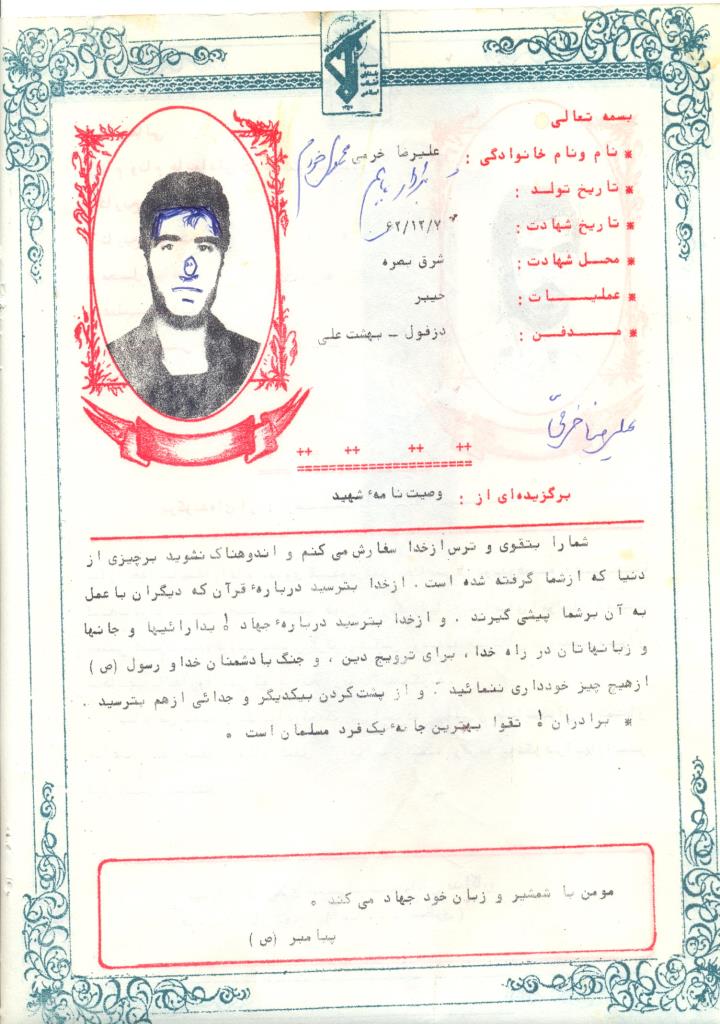 بسمه تعالی
* نام ونام خانوادگی : علیرضا خرمی
* تاریخ تولد :
* تاریخ شهادت : ۶۲/۱۲/۷
* محل شهادت : شرق بصره
* عملیات : خیبر
* مدفن : دزفول ــ بهشت علی
علیرضا خرمی
++ ++ ++ ++
برگزیده‌ای از : وصیت نامهٔ شهید
شمارا بتقوی و ترس ازخدا سفارش می کنم و اندوهناک نشوید برچیزی از
دنیا که ازشما گرفته شده است . ازخدا بترسید دربارهٔ قرآن که دیگران با عمل
به آن برشما پیشی گیرند . و ازخدا بترسید دربارهٔ جهاد ! بدارائیها و جانها
و زبانهاتان در راه خدا ، برای ترویج دین ، و جنگ با دشمنان خدا و رسول (ص)
ازهیچ چیز خودداری ننمائید . و از پشت کردن بیکدیگر و جدائی ازهم بترسید .
* برادران ! تقوا بهترین جامهٔ یک فرد مسلمان است .
مومن با شمشیر و زبان خود جهاد می کند .
پیامبر (ص)